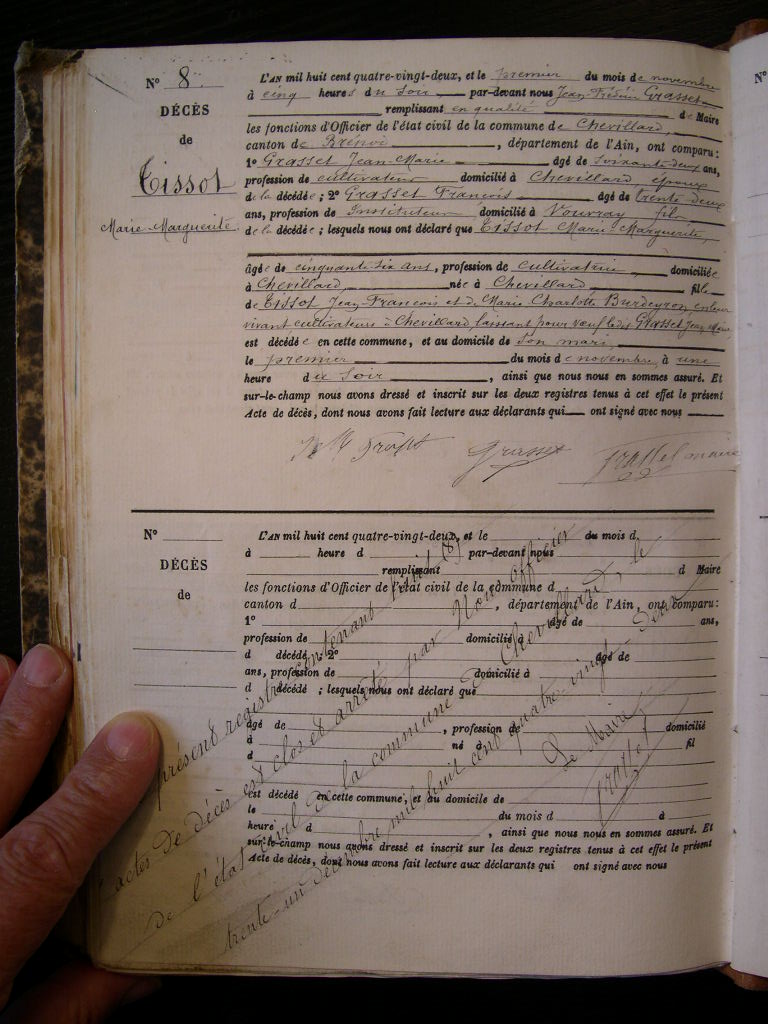 N° 8
DÉCÈS
de
Tissot
Marie Marguerite
L'AN mil huit cent quatre-vingt-deux, et le premier du mois de novembre
à cinq heures du soir par-devant nous Jean Grasset
remplissant en qualité de Maire
les fonctions d'Officier de l'état civil de la commune de Chevillard,
canton de Brénod, département de l'Ain, ont comparu:
1° Grasset Jean-Marie âgé de soixante deux ans,
profession de cultivateur domicilié à Chevillard époux
de la décédée; 2° Grasset François âgé de trente deux
ans, profession de Instituteur domicilié à Vouvray fils
de la décédée; lesquels nous ont déclaré que Tissot Marie Marguerite,
âgée de cinquante six ans, profession de cultivatrice, domiciliée
à Chevillard, née à Chevillard fille
de Tissot Jean François et de Marie Charlotte Burdeyron en leur
vivant cultivateurs à Chevillard, laissant pour veuf ledit Grasset Jean Marie
est décédée en cette commune, et au domicile de son mari,
le premier du mois de novembre, à une
heure du soir, ainsi que nous nous en sommes assuré. Et
sur-le-champ nous avons dressé et inscrit sur les deux registres tenus à cet effet le présent
Acte de décès, dont nous avons fait lecture aux déclarants qui ont signé avec nous
Grasset
N°
DÉCÈS
de
L'AN mil huit cent quatre-vingt-deux, et le du mois d
à heure d par-devant nous
remplissant d Maire
les fonctions d'Officier de l'état civil de la commune d
canton d , département de l'Ain, ont comparu:
1° âgé de ans,
profession de domicilié à
d décédé ; 2° âgé de
ans, profession de domicilié à
d décédé ; lesquels nous ont déclaré que
âgé de , profession de domicilié
à né à fil
d
est décédé en cette commune, et au domicile de
le du mois d à
heure d , ainsi que nous nous en sommes assuré. Et
sur-le-champ nous avons dressé et inscrit sur les deux registres tenus à cet effet le présent
Acte de décès, dont nous avons fait lecture aux déclarants qui ont signé avec nous
présent registre contenant huit (8)
actes de décès est clos et arrêté par Nous officier
de l'état civil de la commune de Chevillard, le
trente-un décembre mil huit cent quatre-vingt-deux
Le Maire